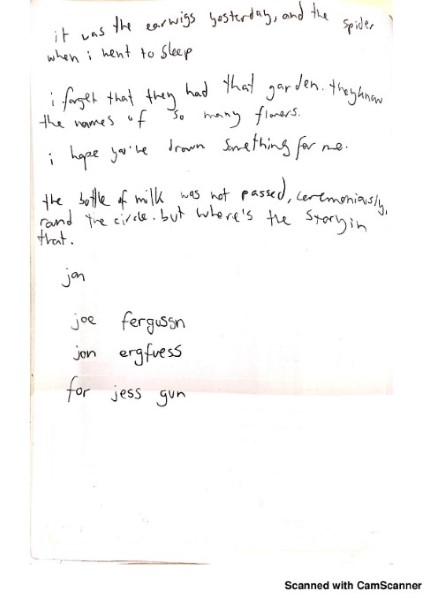 it was the earwigs yesterday, and the spider
when i went to sleep
i forget that they had that garden. they know
the names of so many flowers.
i hope you've drawn something for me.
the bottle of milk was not passed, ceremoniously,
round the circle. but where's the story in
that.
jon
joe fergussn
jon ergfuess
for jess gun
Scanned with CamScanner